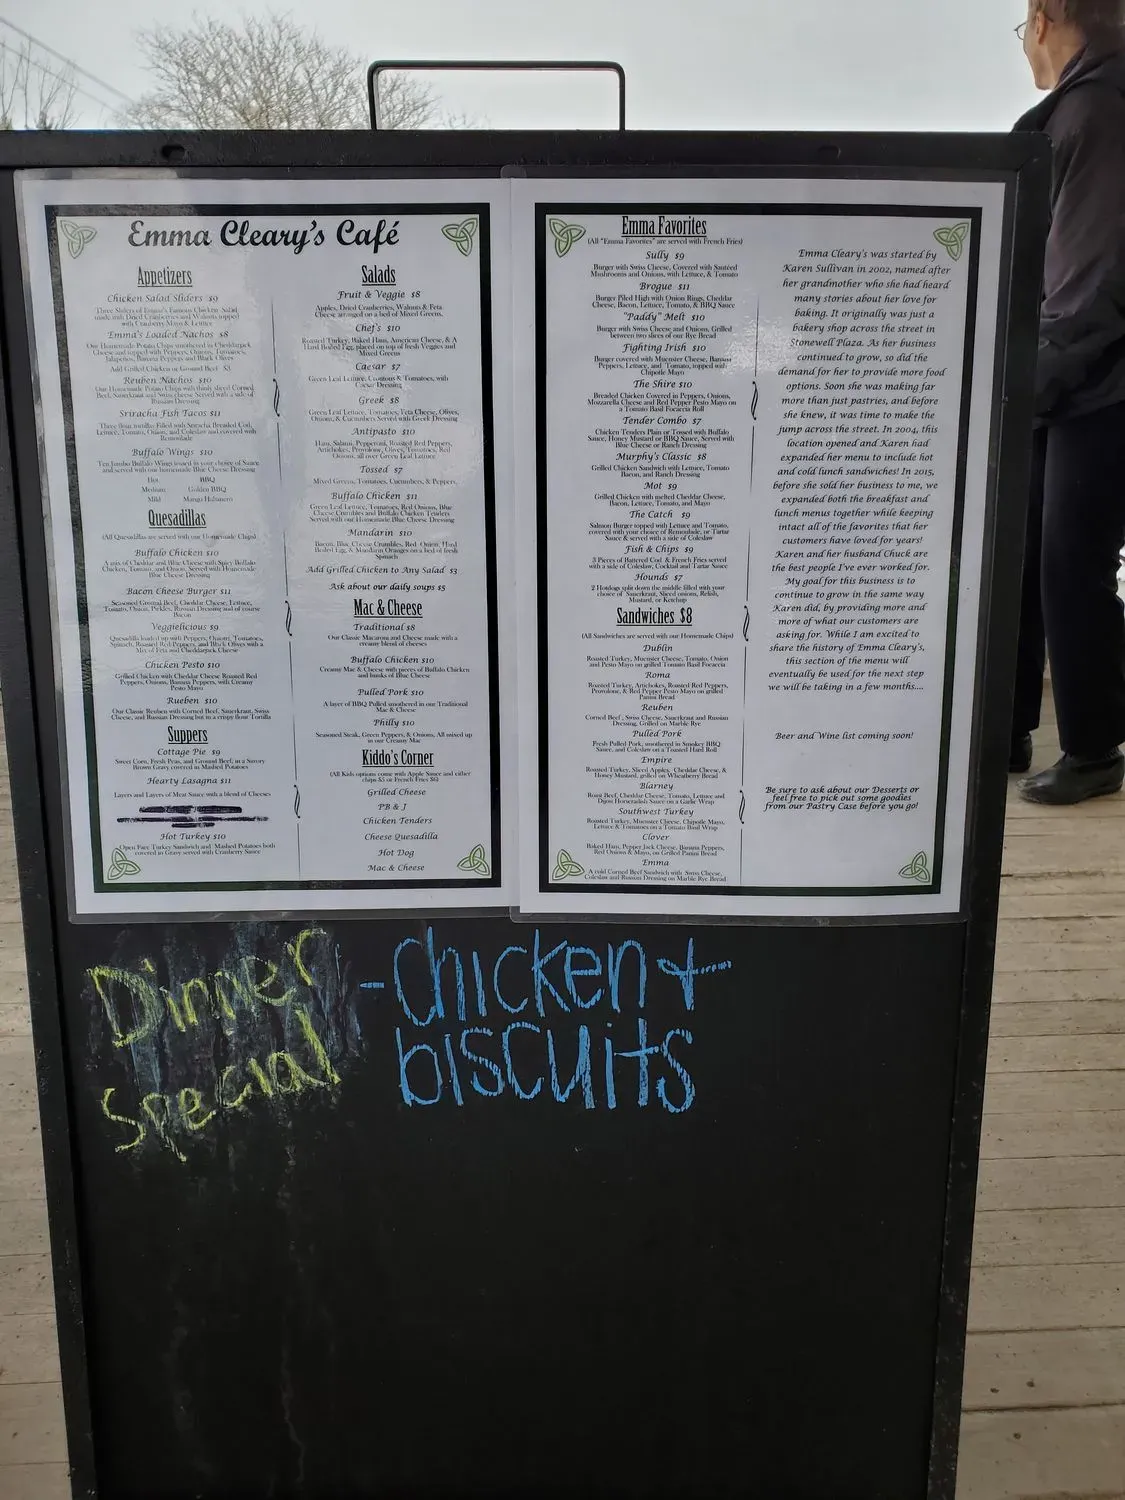 Emma Cleary's Café
Appetizers
Chicken Salad Sliders $9
Three Sliders of Emma's Famous Chicken Salad
made with Dried Cranberries and Walnuts topped
with Cranberry Mayo & Lettuce
Emma's Loaded Nachos $8
Our Homemade Potato Chips smothered in Cheddarjack
Cheese and topped with Peppers, Onions, Tomatoes,
Jalapeños, Banana Peppers and Black Olives
Add Grilled Chicken or Ground Beef $3
Reuben Nachos $10
Our Homemade Potato Chips with thinly sliced Corned
Beef, Sauerkraut and Swiss cheese Served with a side of
Russian Dressing
Sriracha Fish Tacos $11
Three flour tortillas Filled with Sriracha Breaded Cod,
Lettuce, Tomato, Onion, and Coleslaw and covered with
Remoulade
Buffalo Wings $10
Ten Jumbo Buffalo Wings tossed in your choice of Sauce
and served with our homemade Blue Cheese Dressing
Hot BBQ
Medium Golden BBQ
Mild Mango Habanero
Quesadillas
(All Quesadillas are served with our Homemade Chips)
Buffalo Chicken $10
A mix of Cheddar and Blue Cheese with Spicy Buffalo
Chicken, Tomato, and Onion, Served with Homemade
Blue Cheese Dressing
Bacon Cheese Burger $11
Seasoned Ground Beef, Cheddar Cheese, Lettuce,
Tomato, Onion, Pickles, Russian Dressing and of course
Bacon
Veggielicious $9
Quesadilla loaded up with Peppers, Onions, Tomatoes,
Spinach, Roasted Red Peppers, and Black Olives with a
Mix of Feta and Cheddarjack Cheese
Chicken Pesto $10
Grilled Chicken with Cheddar Cheese Roasted Red
Peppers, Onions, Banana Peppers, with Creamy
Pesto Mayo
Rueben $10
Our Classic Reuben with Corned Beef, Sauerkraut, Swiss
Cheese, and Russian Dressing but in a crispy flour Tortilla
Suppers
Cottage Pie $9
Sweet Corn, Fresh Peas, and Ground Beef, in a Savory
Brown Gravy covered in Mashed Potatoes
Hearty Lasagna $11
Layers and Layers of Meat Sauce with a blend of Cheeses
Hot Turkey $10
Open Face Turkey Sandwich and Mashed Potatoes both
covered in Gravy served with Cranberry Sauce
Salads
Fruit & Veggie $8
Apples, Dried Cranberries, Walnuts & Feta
Cheese arranged on a bed of Mixed Greens,
Chef's $10
Roasted Turkey, Baked Ham, American Cheese, & A
Hard Boiled Egg, placed on top of fresh Veggies and
Mixed Greens
Caesar $7
Green Leaf Lettuce, Croutons & Tomatoes, with
Caesar Dressing
Greek $8
Green Leaf Lettuce, Tomatoes, Feta Cheese, Olives,
Onions, & Cucumbers Served with Greek Dressing
Antipasto $10
Ham, Salami, Pepperoni, Roasted Red Peppers,
Artichokes, Provolone, Olives, Tomatoes, Red
Onions, all over Green Leaf Lettuce
Tossed $7
Mixed Greens, Tomatoes, Cucumbers, & Peppers,
Buffalo Chicken $11
Green Leaf Lettuce, Tomatoes, Red Onions, Blue
Cheese Crumbles and Buffalo Chicken Tenders
Served with our Homemade Blue Cheese Dressing
Mandarin $10
Bacon, Blue Cheese Crumbles, Red Onion, Hard
Boiled Egg, & Mandarin Oranges on a bed of fresh
Spinach
Add Grilled Chicken to Any Salad $3
Ask about our daily soups $5
Mac & Cheese
Traditional $8
Our Classic Macaroni and Cheese made with a
creamy blend of cheeses
Buffalo Chicken $10
Creamy Mac & Cheese with pieces of Buffalo Chicken
and hunks of Blue Cheese
Pulled Pork $10
A layer of BBQ Pulled smothered in our Traditional
Mac & Cheese
Philly $10
Seasoned Steak, Green Peppers, & Onions, All mixed up
in our Creamy Mac
Kiddo's Corner
(All Kids options come with Apple Sauce and either
chips $5 or French Fries $6)
Grilled Cheese
PB & J
Chicken Tenders
Cheese Quesadilla
Hot Dog
Mac & Cheese
Emma Favorites
(All "Emma Favorites" are served with French Fries)
Sully $9
Burger with Swiss Cheese, Covered with Sautéed
Mushrooms and Onions, with Lettuce, & Tomato
Brogue $11
Burger Piled High with Onion Rings, Cheddar
Cheese, Bacon, Lettuce, Tomato, & BBQ Sauce
"Paddy" Melt $10
Burger with Swiss Cheese and Onions, Grilled
between two slices of our Rye Bread
Fighting Irish $10
Burger covered with Muenster Cheese, Banana
Peppers, Lettuce, and Tomato, topped with
Chipotle Mayo
The Shire $10
Breaded Chicken Covered in Peppers, Onions,
Mozzarella Cheese and Red Pepper Pesto Mayo on
a Tomato Basil Focaccia Roll
Tender Combo $7
Chicken Tenders Plain or Tossed with Buffalo
Sauce, Honey Mustard or BBQ Sauce, Served with
Blue Cheese or Ranch Dressing
Murphy's Classic $8
Grilled Chicken Sandwich with Lettuce, Tomato
Bacon, and Ranch Dressing
Mot $9
Grilled Chicken with melted Cheddar Cheese,
Bacon, Lettuce, Tomato, and Mayo
The Catch $9
Salmon Burger topped with Lettuce and Tomato,
covered with your choice of Remoulade, or Tartar
Sauce & served with a side of Coleslaw
Fish & Chips $9
3 Pieces of Battered Cod & French Fries served
with a side of Coleslaw, Cocktail and Tartar Sauce
Hounds $7
2 Hotdogs split down the middle filled with your
choice of Sauerkraut, Sliced onions, Relish,
Mustard, or Ketchup
Sandwiches $8
(All Sandwiches are served with our Homemade Chips)
Dublin
Roasted Turkey, Muenster Cheese, Tomato, Onion
and Pesto Mayo on grilled Tomato Basil Focaccia
Roma
Roasted Turkey, Artichokes, Roasted Red Peppers,
Provolone, & Red Pepper Pesto Mayo on grilled
Panini Bread
Reuben
Corned Beef, Swiss Cheese, Sauerkraut and Russian
Dressing, Grilled on Marble Rye
Pulled Pork
Fresh Pulled Pork, smothered in Smokey BBQ
Sauce, and Coleslaw on a Toasted Hard Roll
Empire
Roasted Turkey, Sliced Apples, Cheddar Cheese, &
Honey Mustard, grilled on Wheatberry Bread
Blarney
Roast Beef, Cheddar Cheese, Tomato, Lettuce and
Dijon Horseradish Sauce on a Garlic Wrap
Southwest Turkey
Roasted Turkey, Muenster Cheese, Chipotle Mayo,
Lettuce & Tomatoes on a Tomato Basil Wrap
Clover
Baked Ham, Pepper Jack Cheese, Banana Peppers,
Red Onions & Mayo, on Grilled Panini Bread
Emma
A cold Corned Beef Sandwich with Swiss Cheese,
Coleslaw and Russian Dressing on Marble Rye Bread
Emma Cleary's was started by
Karen Sullivan in 2002, named after
her grandmother who she had heard
many stories about her love for
baking. It originally was just a
bakery shop across the street in
Stonewell Plaza. As her business
continued to grow, so did the
demand for her to provide more food
options. Soon she was making far
more than just pastries, and before
she knew, it was time to make the
jump across the street. In 2004, this
location opened and Karen had
expanded her menu to include hot
and cold lunch sandwiches! In 2015,
before she sold her business to me, we
expanded both the breakfast and
lunch menus together while keeping
intact all of the favorites that her
customers have loved for years!
Karen and her husband Chuck are
the best people I've ever worked for.
My goal for this business is to
continue to grow in the same way
Karen did, by providing more and
more of what our customers are
asking for. While I am excited to
share the history of Emma Cleary's,
this section of the menu will
eventually be used for the next step
we will be taking in a few months....
Beer and Wine list coming soon!
Be sure to ask about our Desserts or
feel free to pick out some goodies
from our Pastry Case before you go!
Dinner - chicken +
Special biscuits